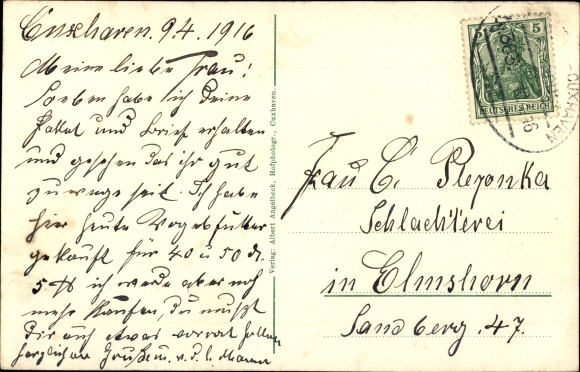 Cuxhaven. 9.4. 1916
Meine liebe Frau!
Soeben habe ich Deine
Paket und Brief erhalten
und gesehen das ihr gut
zuwege seit. Ich habe
hier heute Vogelfutter
gekauft für 40 u 50 d.
5 ℔ ich werde aber noch
mehr kaufen, du must
dir auf etwas vorrat halten
herzlichen Gruße u. v. d. l. Mann
Verlag: Albert Angelbeck, Hofphotogr., Cuxhaven.
DEUTSCHES REICH
5
CUXHAVEN
Frau C.
Schlachterei
in Elmshorn
Sandberg. 47.